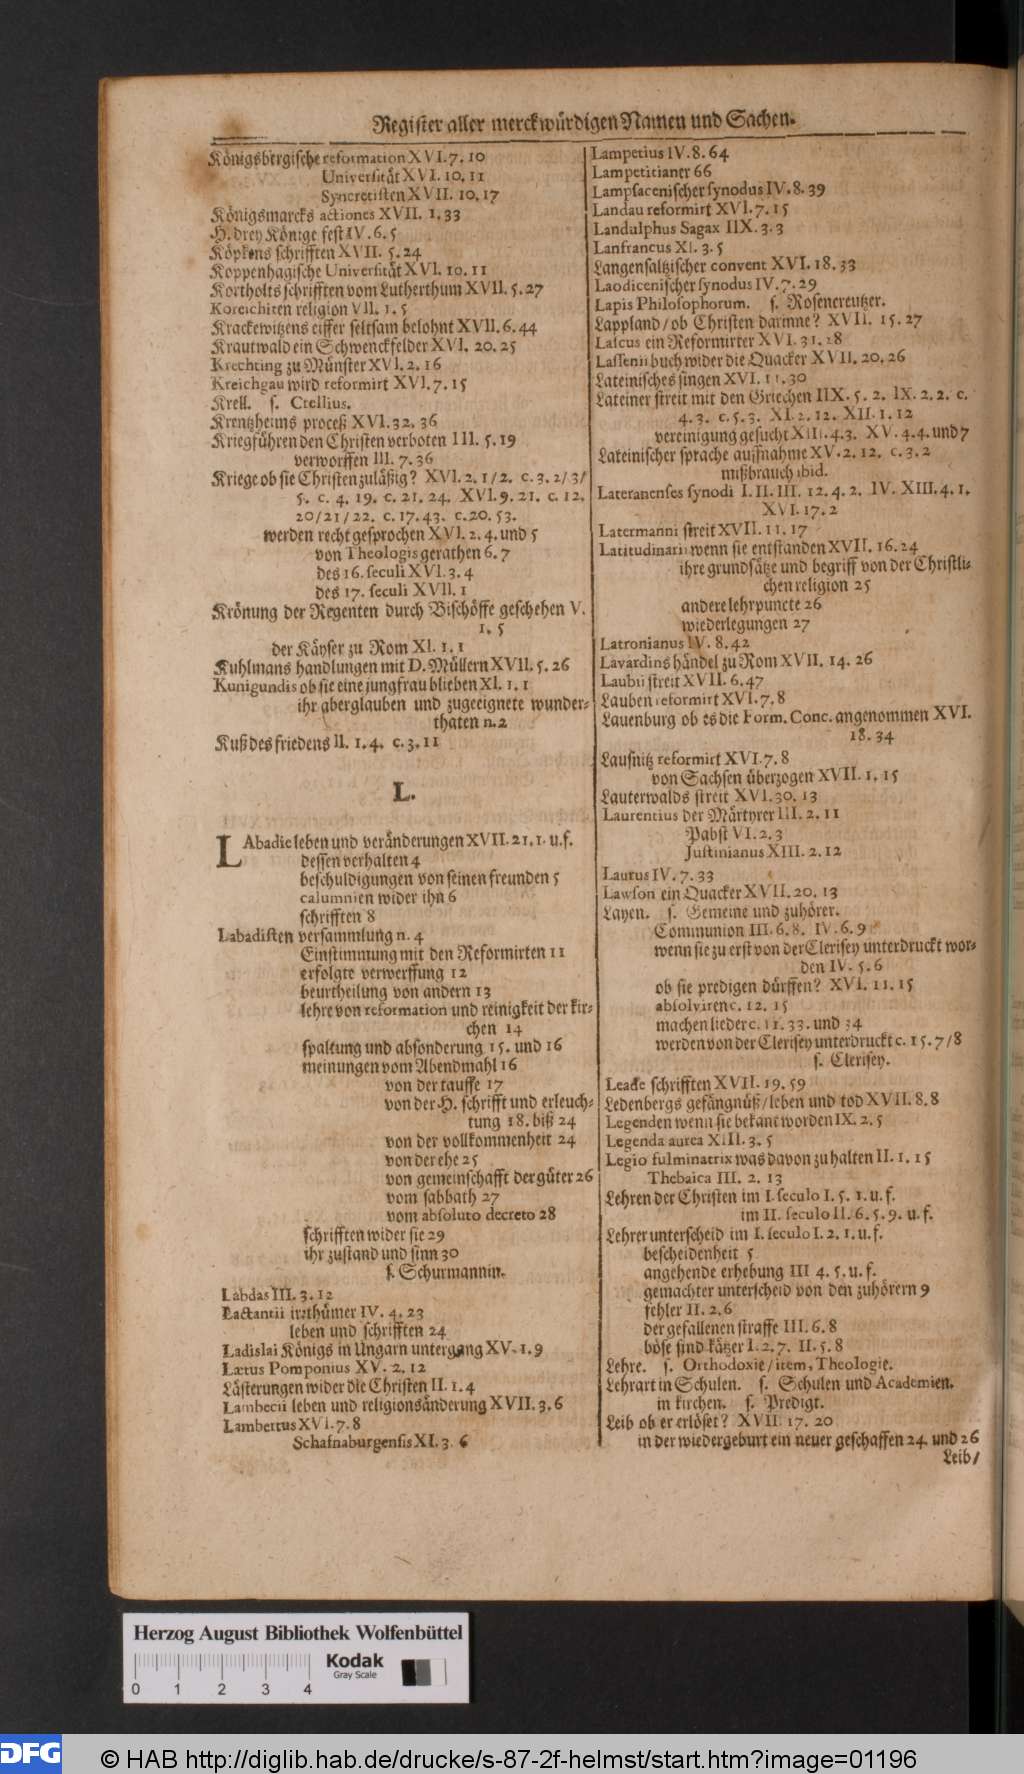 Register aller merckwürdigen Namen und Sachen.
Königsbergische reformation XVI. 7. 10
Universität XVI. 10. 11
Syncretisten XVII. 10. 17
Königsmarcks actiones XVII. 1. 33
H. drey Könige fest IV. 6. 5
Köpkens schrifften XVII. 5. 24
Koppenhagische Universität XVI. 10. 11
Kortholts schrifften vom Lutherthum XVII. 5. 27
Koreichiten religion VII. 1. 5
Krackewitzens eiffer seltsam belohnt XVII. 6. 44
Krautwald ein Schwenckfelder XVI. 20. 25
Krechting zu Münster XVI. 2. 16
Kreichgau wird reformirt XVI. 7. 15
Krell. s. Crellius.
Krentzheims proceß XVI. 32. 36
Kriegführen den Christen verboten III. 5. 19
verworffen III. 7. 36
Kriege ob sie Christen zuläßig? XVI. 2. 1/2. c. 3. 2/3/
5. c. 4. 19. c. 21. 24. XVI. 9. 21. c. 12.
20/21/22. c. 17. 43. c. 20. 53.
werden recht gesprochen XVI. 2. 4. und 5
von Theologis gerathen 6. 7
des 16. seculi XVI. 3. 4
des 17. seculi XVII. 1
Krönung der Regenten durch Bischöffe geschehen V.
1. 5
der Käyser zu Rom XI. 1. 1
Kuhlmans handlungen mit D. Müllern XVII. 5. 26
Kunigundis ob sie eine jungfrau blieben XI. 1. 1
ihr aberglauben und zugeeignete wunder-
thaten n. 2
Kuß des friedens II. 1. 4. c. 3. 11
L.
LAbadie leben und veränderungen XVII. 21. 1. u. f.
dessen verhalten 4
beschuldigungen von seinen freunden 5
calumnien wider ihn 6
schrifften 8
Labadisten versammlung n. 4
Einstimmung mit den Reformirten 11
erfolgte verwerffung 12
beurtheilung von andern 13
lehre von reformation und reinigkeit der kir-
chen 14
spaltung und absonderung 15. und 16
meinungen vom Abendmahl 16
von der tauffe 17
von der H. schrifft und erleuch-
tung 18. biß 24
von der vollkommenheit 24
von der ehe 25
von gemeinschafft der güter 26
vom sabbath 27
vom absoluto decreto 28
schrifften wider sie 29
ihr zustand und sinn 30
s. Schurmannin.
Labdas III. 3. 12
Lactantii irrthümer IV. 4. 23
leben und schrifften 24
Ladislai Königs in Ungarn untergang XV. 1. 9
Lætus Pomponius XV. 2. 12
Lästerungen wider die Christen II. 1. 4
Lambecii leben und religionsänderung XVII. 3. 6
Lambertus XVI. 7. 8
Schafnaburgensis XI. 3. 6
Lampetius IV. 8. 64
Lampetitianer 66
Lampsacenischer synodus IV. 8. 39
Landau reformirt XVI. 7. 15
Landulphus Sagax IIX. 3. 3
Lanfrancus XI. 3. 5
Langensaltzischer convent XVI. 18. 33
Laodicenischer synodus IV. 7. 29
Lapis Philosophorum. s. Rosencreutzer.
Lappland/ob Christen darinne? XVII. 15. 27
Lascus ein Reformirter XVI. 31. 18
Lassenii buch wider die Quacker XVII. 20. 26
Lateinisches singen XVI. 11. 30
Lateiner streit mit den Griechen IIX. 5. 2. IX. 2. 2. c.
4. 3. c. 5. 3. XI. 2. 12. XII. 1. 12
vereinigung gesucht XIII. 4. 3. XV. 4. 4. und 7
Lateinischer sprache aufnahme XV. 2. 12. c. 3. 2
mißbrauch ibid.
Lateranenses synodi I. II. III. 12. 4. 2. IV. XIII. 4. 1.
XVI. 17. 2
Latermanni streit XVII. 11. 17
Latitudinarii wenn sie entstanden XVII. 16. 24
ihre grundsätze und begriff von der Christli-
chen religion 25
andere lehrpuncte 26
wiederlegungen 27
Latronianus IV. 8. 42
Lavardins händel zu Rom XVII. 14. 26
Laubii streit XVII. 6. 47
Lauben reformirt XVI. 7. 8
Lauenburg ob es die Form. Conc. angenommen XVI.
18. 34
Lausnitz reformirt XVI. 7. 8
von Sachsen überzogen XVII. 1. 15
Lauterwalds streit XVI. 30. 13
Laurentius der Märtyrer III. 2. 11
Pabst VI. 2. 3
Justinianus XIII. 2. 12
Laurus IV. 7. 33
Lawson ein Quacker XVII. 20. 13
Layen. s. Gemeine und zuhörer.
Communion III. 6. 8. IV. 6. 9
wenn sie zu erst von der Clerisey unterdruckt wor-
den IV. 5. 6
ob sie predigen dürffen? XVI. 11. 15
absolviren c. 12. 15
machen lieder c. 11. 33. und 34
werden von der Clerisey unterdruckt c. 15. 7/8
s. Clerisey.
Leade schrifften XVII. 19. 59
Ledenbergs gefängnüß/leben und tod XVII. 8. 8
Legenden wenn sie bekant worden IX. 2. 5
Legenda aurea XIII. 3. 5
Legio fulminatrix was davon zu halten II. 1. 15
Thebaica III. 2. 13
Lehren der Christen im I. seculo I. 5. 1. u. f.
im II. seculo II. 6. 5. 9. u. f.
Lehrer unterscheid im I. seculo I. 2. 1. u. f.
bescheidenheit 5
angehende erhebung III 4. 5. u. f.
gemachter unterscheid von den zuhörern 9
fehler II. 2. 6
der gefallenen straffe III. 6. 8
böse sind kätzer I. 2. 7. II. 5. 8
Lehre. s. Orthodoxie/item, Theologie.
Lehrart in Schulen. s. Schulen und Academien.
in kirchen. s. Predigt.
Leib ob er erlöset? XVII. 17. 20
in der wiedergeburt ein neuer geschaffen 24. und 26
Leib/
Herzog August Bibliothek Wolfenbüttel
Kodak
Gray Scale
0 1 2 3 4
DFG
© HAB http://diglib.hab.de/drucke/s-87-2f-helmst/start.htm?image=01196